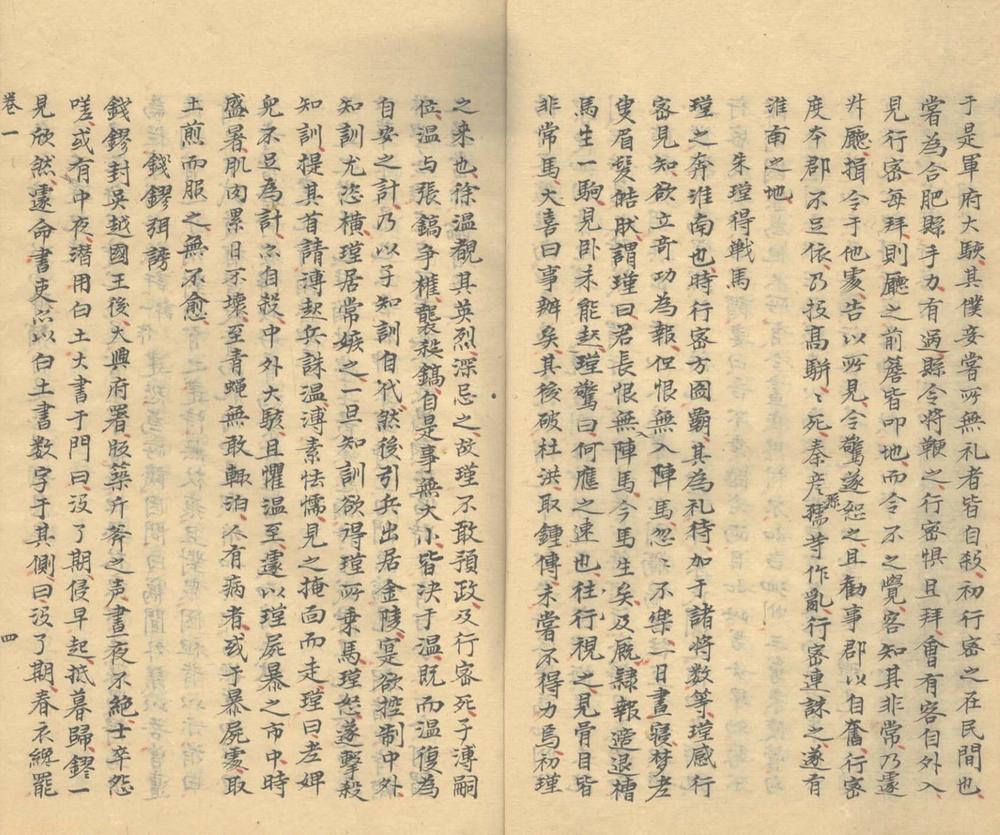 于是軍府大駭其僕妾嘗所無礼者皆自殺初行密之在民間也
嘗為合肥縣手力有過縣令將鞭之行密懼且拜會有客自外入
見行密每拜則廳之前簷皆叩地而令不之覺客知其非常乃遽
升廳揖令于他處告以所見令驚遂恕之且勸事郡以自奮行密
度本郡不足依乃投高駢〻死秦彦孫儒等作亂行密連誅之遂有
淮南之地
朱瑾得戰馬
瑾之奔淮南也時行密方圖霸其為礼待加于諸將数等瑾感行
密見知欲立奇功為報但恨無入陣馬忽〻不樂一日晝寝梦老
叟眉髮皓肰謂瑾曰君長恨無陣馬今馬生矣及厩隸報適退槽
馬生一駒見卧未能起瑾驚曰何應之速也往行視之見骨目皆
非常馬大喜曰事辦矣其後破杜洪取鍾傳未嘗不得力焉初瑾
之来也徐温覩其英烈深忌之故瑾不敢預政及行密死子溥嗣
位温与張鎬争權襲殺鎬自是事無大小皆决于温既而温復為
自安之計乃以子知訓自代然後引兵出居金陵寔欲控制中外
知訓尤恣橫瑾居常嫉之一旦知訓欲得瑾所乗馬瑾怒遂擊殺
知訓提其首請溥起兵誅温溥素怯懦見之掩面而走瑾曰老婢
兒不足為計亦自殺中外大駭且懼温至遽以瑾屍暴之市中時
盛暑肌肉累日不壞至青蠅無敢輒泊人有病者或于暴屍處取
土煎而服之無不愈
錢鏐弭謗
錢鏐封吳越國王後大興府署版築斤斧之声晝夜不絶士卒怨
嗟或有中夜潜用白土大書于門曰没了期侵早起抵暮歸鏐一
見欣然遽命書吏亦以白土書数字于其側曰没了期春衣纔罷
卷一
四